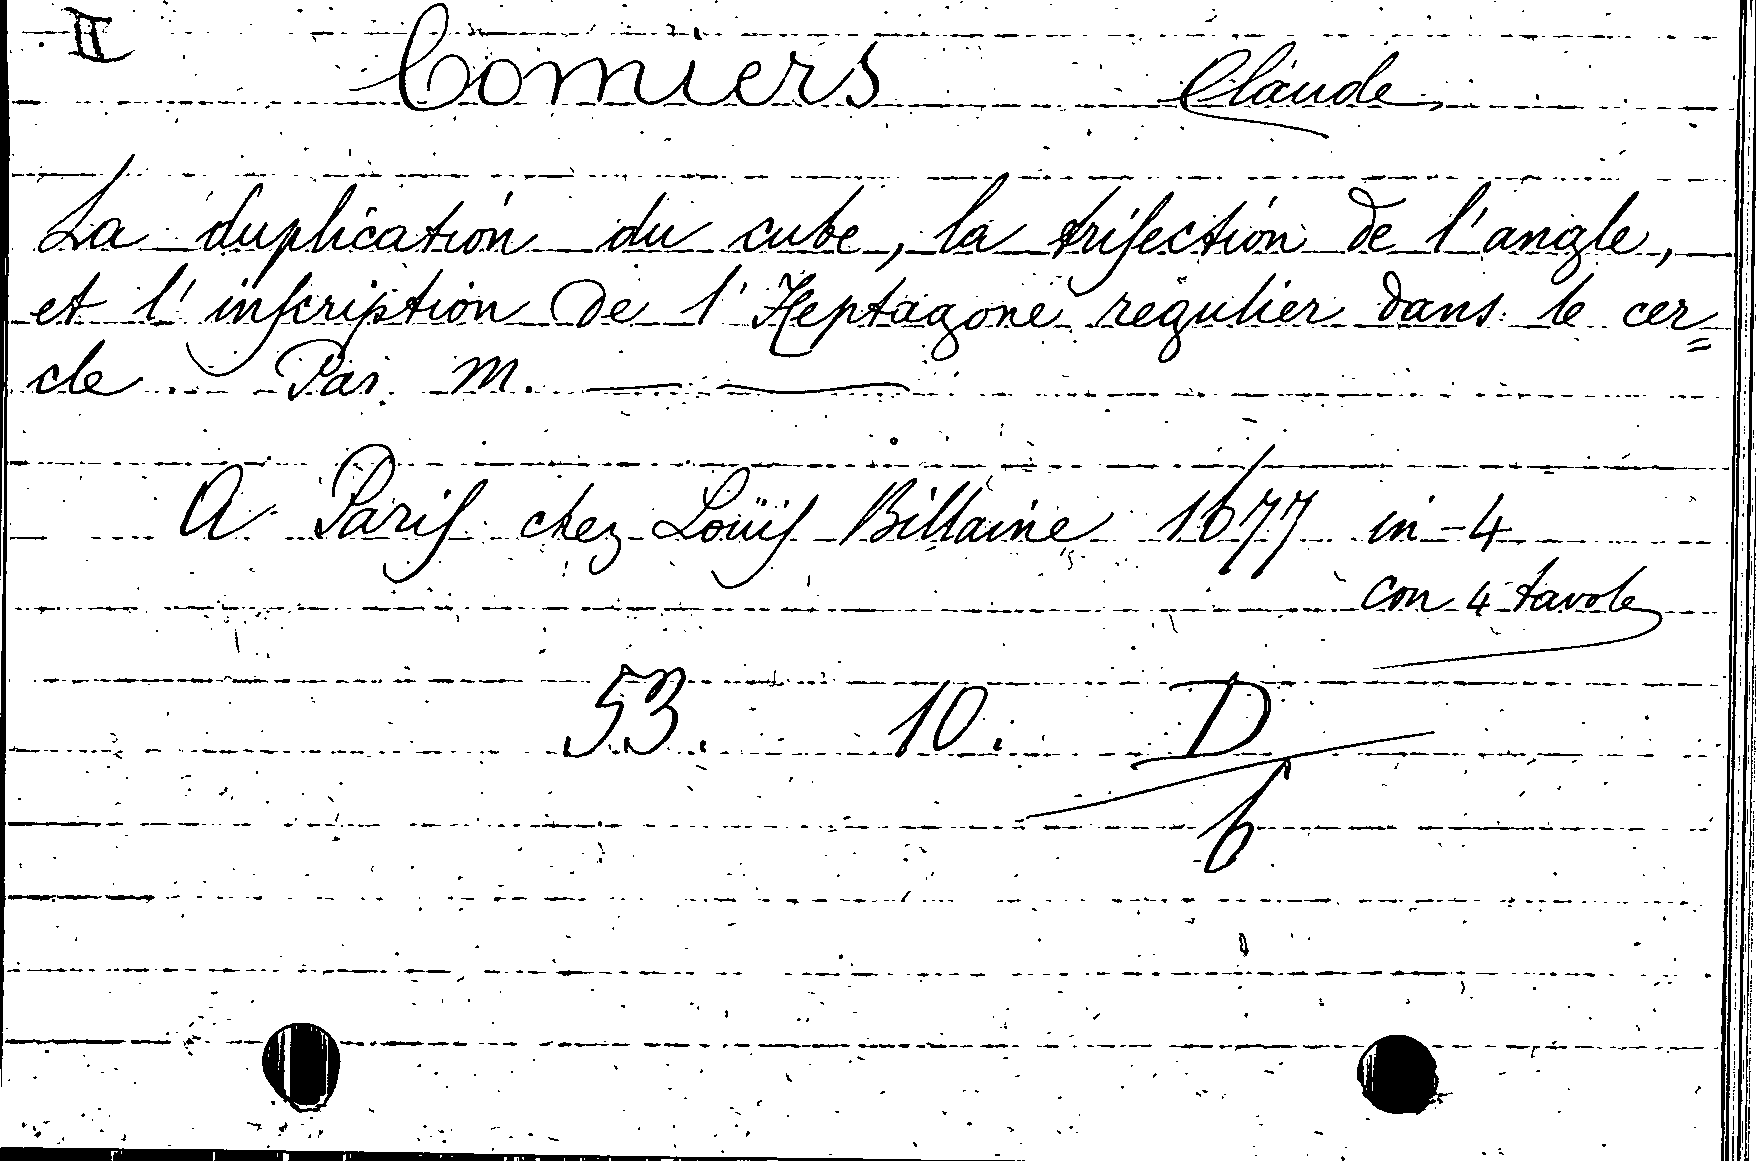 II Comiers Claude
La duplication du cube, la triſection de l'angle,
et l'inſcription de l'Heptagone regulier dans le cer=
cle. Par M. ——— ———
A Pariſ chez Loüiſ Billaine 1677 in-4
con 4 tavole
53. 10. D
6